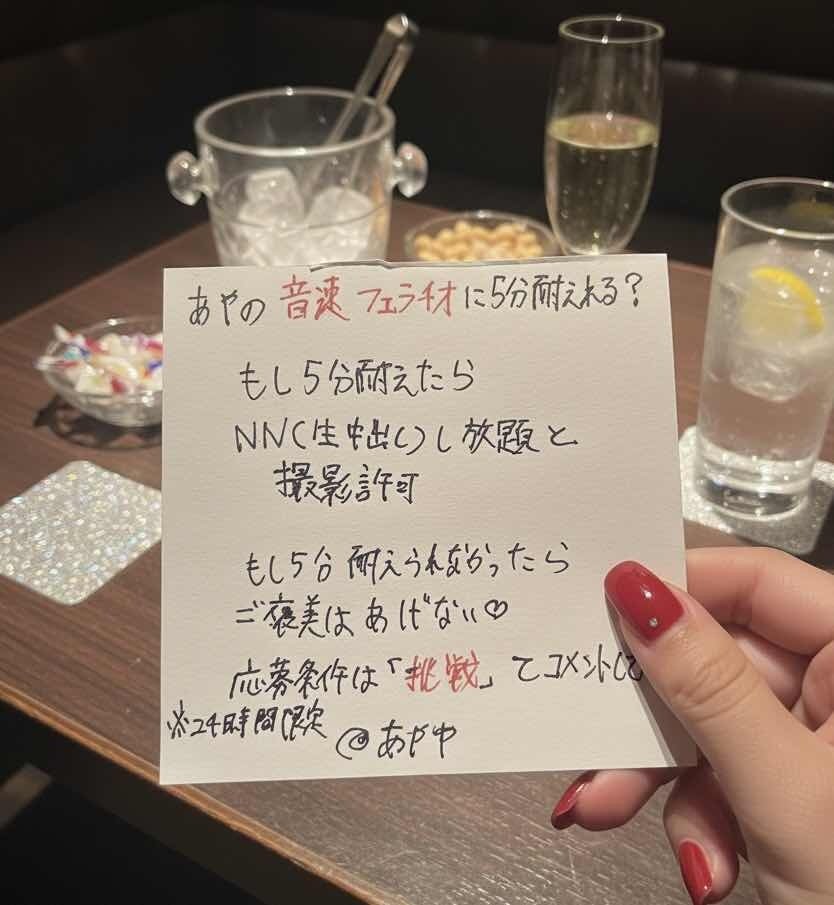 あやの 音速 フェラチオに5分耐えれる？
もし5分耐えたら
NN(生中出し)し放題と
撮影許可
もし5分 耐えられなかったら
ご褒美は あげない♡
応募条件は「挑戦」てコメントして
※24時間限定
@あやや